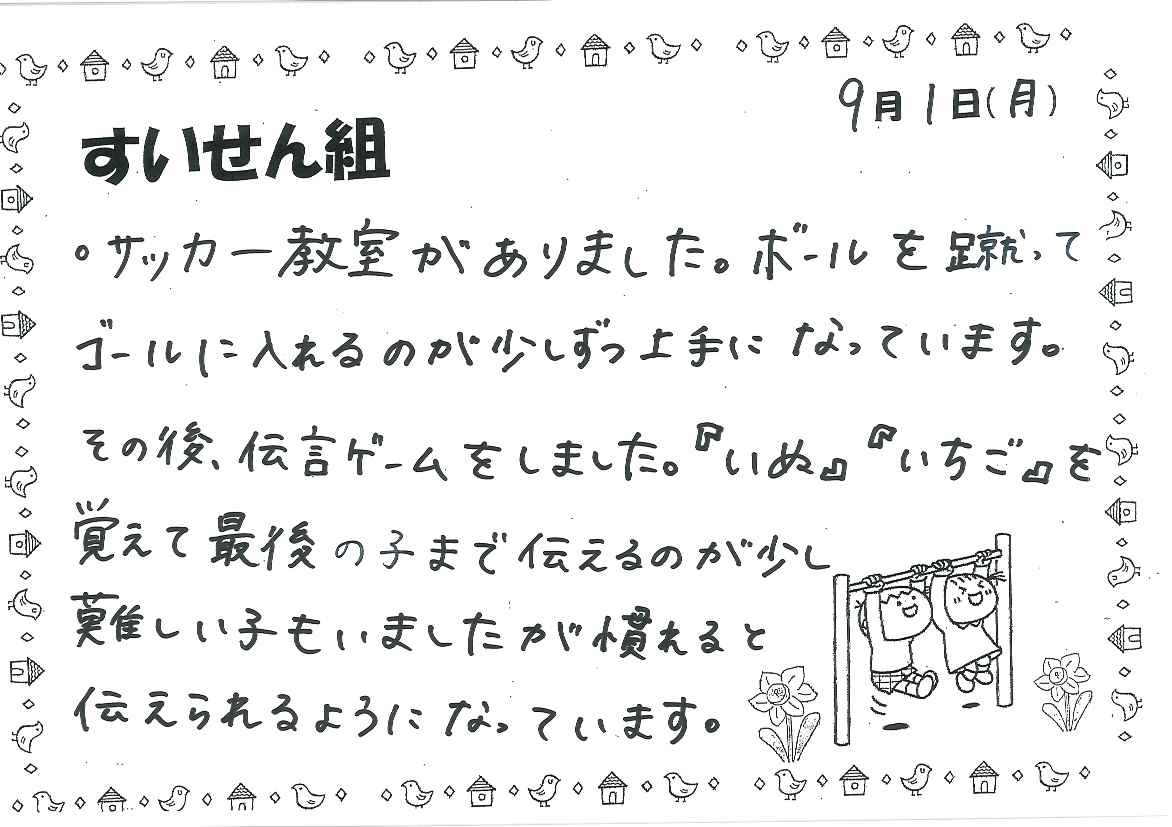 9月1日(月)
すいせん組
。サッカー教室がありました。ボールを蹴って
ゴールに入れるのが少しずつ上手になっています。
その後、伝言ゲームをしました。『いぬ』『いちご』を
覚えて最後の子まで伝えるのが少し
難しい子もいましたが慣れると
伝えられるようになっています。